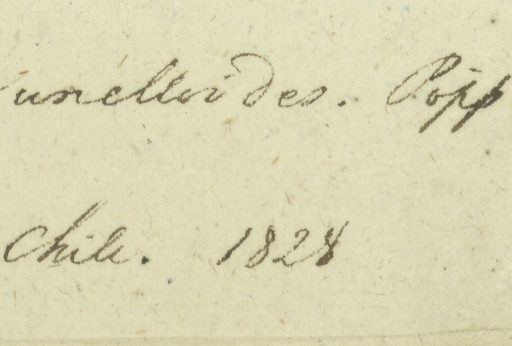 unelloides. Pöpp
Chile. 1828